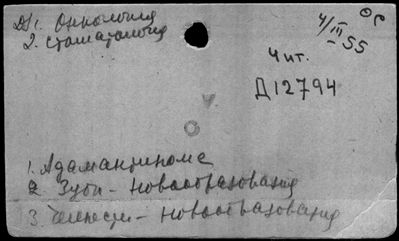 1. Онкология
2. Стоматология
4/III - 55
Чит.
Д12794
1. Адамантинома
2. Зубы - Новообразования
3. Челюсти - Новообразования